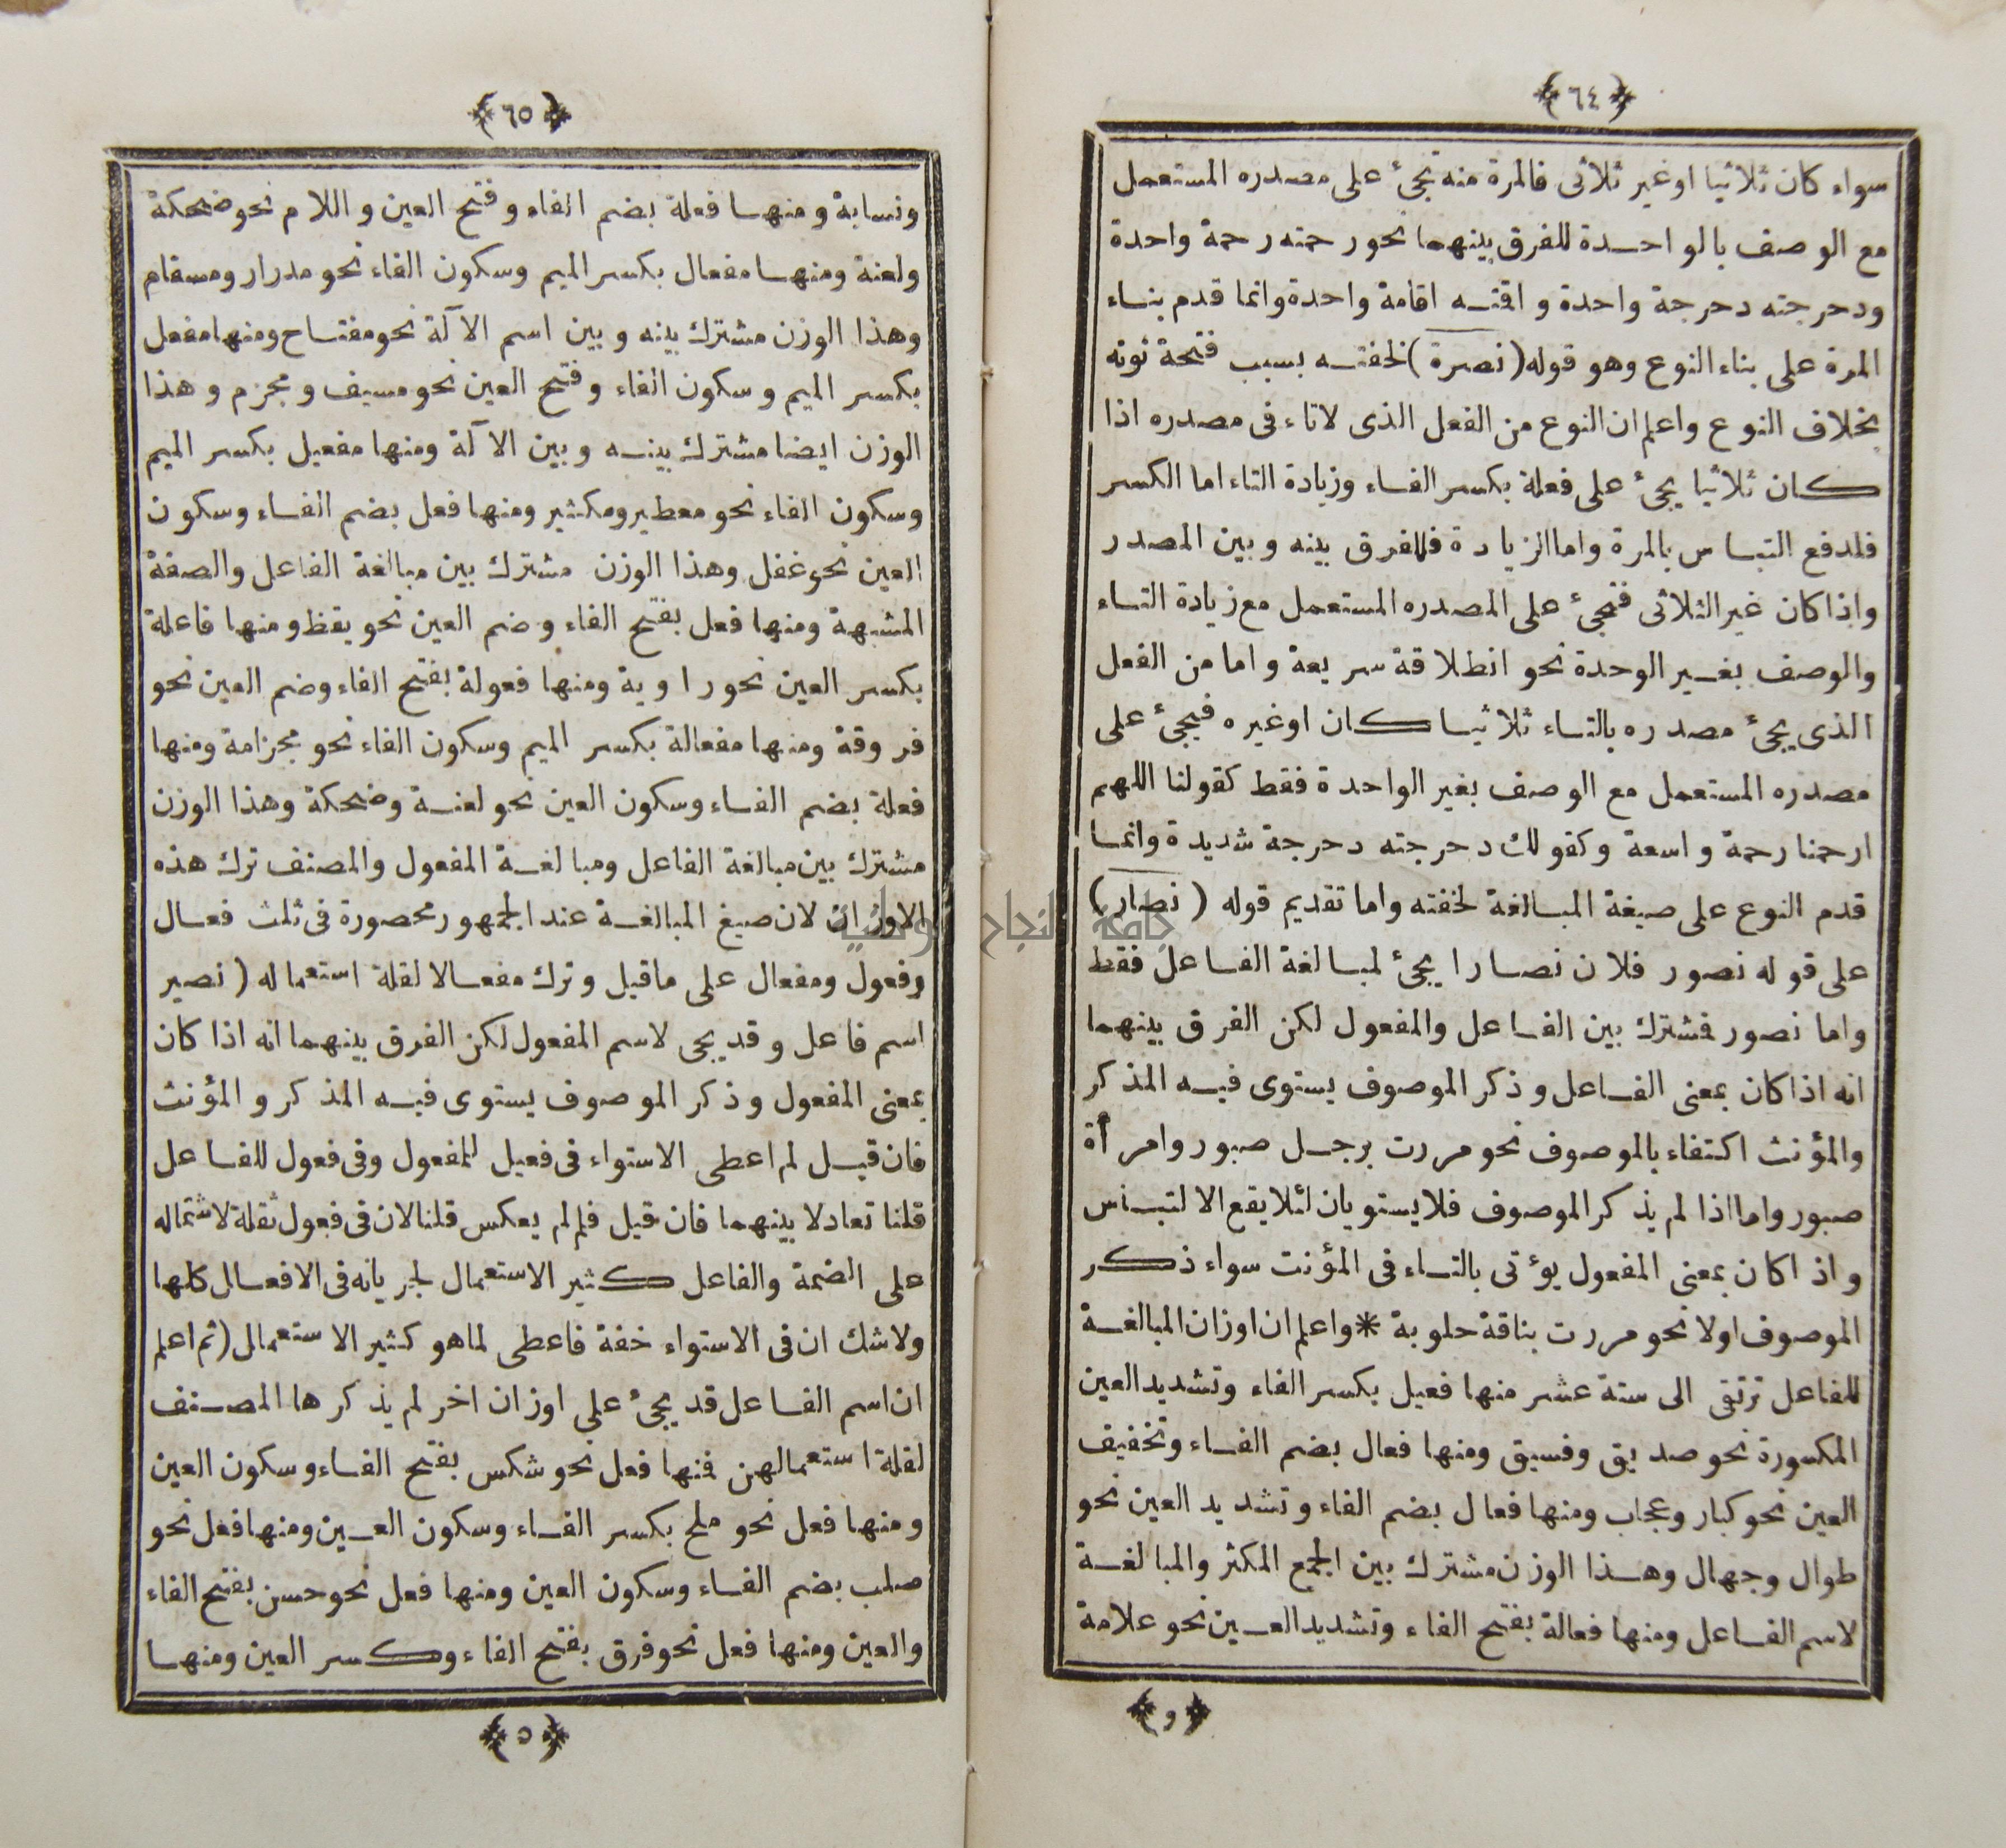 ﴿٦٤﴾
سواء كان ثلاثيا اوغير ثلاثى فالمرة منه تجئ على مصدره المستعمل
مع الوصف بالواحدة للفرق بينهما نحو رحمته رحمة واحدة
ودحرجته دحرجة واحدة واقمته اقامة واحدة وانما قدم بناء
المرة على بناء النوع وهو قوله (نصرة) لخفته بسبب فتحة نونه
بخلاف النوع واعلم ان النوع من الفعل الذى لاتاء فى مصدره اذا
كان ثلاثيا يجئ على فعلة بكسر الفاء وزيادة التاء اما الكسر
فلدفع التباس بالمرة واما الزيادة فللفرق بينه وبين المصدر
واذا كان غير الثلاثى فتجئ على المصدره المستعمل مع زيادة التاء
والوصف بغير الوحدة نحو انطلاقة سريعة واما من الفعل
الذى يجئ مصدره بالتاء ثلاثيا كان اوغيره فيجئ على
مصدره المستعمل مع الوصف بغير الواحدة فقط كقولنا اللهم
ارحمنا رحمة واسعة وكقولك دحرجته دحرجة شديدة وانما
قدم النوع على صيغة المبالغة لخفته واما تقديم قوله (نصار)
على قوله نصور فلان نصارا يجئ لمبالغة الفاعل فقط
واما نصور فمشترك بين الفاعل والمفعول لكن الفرق بينهما
انه اذا كان بمعنى الفاعل وذكر الموصوف يستوى فيه المذكر
والمؤنث اكتفاء بالموصوف نحو مررت برجل صبور وامرأة
صبور واما اذا لم يذكر الموصوف فلا يستويان لئلا يقع الالتباس
واذا كان بمعنى المفعول يؤتى بالتاء فى المؤنت سواء ذكر
الموصوف اولا نحو مررت بناقة حلوبة * واعلم ان اوزان المبالغة
للفاعل ترتقى الى ستة عشر منها فعيل بكسر الفاء وتشديد العين
المكسورة نحو صديق وفسيق ومنها فعال بضم الفاء وتخفيف
العين نحو كبار وعجاب ومنها فعال بضم الفاء وتشديد العين نحو
طوال وجهال وهذا الوزن مشترك بين الجمع المكثر والمبالغة
لاسم الفاعل ومنها فعالة بفتح الفاء وتشديد العين نحو علامة
﴿و﴾
﴿٦٥﴾
ونسابة ومنها فعلة بضم الفاء وفتح العين واللام نحو ضحكة
ولعنة ومنها مفعال بكسر الميم وسكون الفاء نحو مدرار ومسقام
وهذا الوزن مشترك بينه وبين اسم الآلة نحو مفتاح ومنها مفعل
بكسر الميم وسكون الفاء وفتح العين نحو مسيف ومجزم وهذا
الوزن ايضا مشترك بينه وبين الآلة ومنها مفعيل بكسر الميم
وسكون الفاء نحو معطير ومكثير ومنها فعل بضم الفاء وسكون
العين نحو غفل وهذا الوزن مشترك بين مبالغة الفاعل والصفة
المشبهة ومنها فعل بفتح الفاء وضم العين نحو يقظ ومنها فاعلة
بكسر العين نحو راوية ومنها فعولة بفتح الفاء وضم العين نحو
فروقة ومنها مفعالة بكسر الميم وسكون الفاء نحو مجزامة ومنها
فعلة بضم الفاء وسكون العين نحو لعنة وضحكة وهذا الوزن
مشترك بين مبالغة الفاعل ومبالغة المفعول والمصنف ترك هذه
الاوزان لان صيغ المبالغة عند الجمهور محصورة فى ثلث فعال
وفعول ومفعال على ماقيل وترك مفعالا لقلة استعماله (نصير
اسم فاعل وقد يجى لاسم المفعول لكن الفرق بينهما انه اذا كان
بمعنى المفعول وذكر الموصوف يستوى فيه المذكر والمؤنث
فان قيل لم اعطى الاستواء فى فعيل للمفعول وفى فعول للفاعل
قلنا تعادلا بينهما فان قيل فلم لم يعكس قلنا لان فى فعول ثقلة لاشتماله
على الضمة والفاعل كثير الاستعمال لجريانه فى الافعال كلها
ولاشك ان فى الاستواء خفة فاعطى لماهو كثير الاستعمال (ثم اعلم
ان اسم الفاعل قد يجئ على اوزان اخر لم يذكرها المصنف
لقلة استعمالهن فمنها فعل نحو شكس بفتح الفاء وسكون العين
ومنها فعل نحو ملح بكسر الفاء وسكون العين ومنها فعل نحو
صلب بضم الفاء وسكون العين ومنها فعل نحو حسن بفتح الفاء
والعين ومنها فعل نحو فرق بفتح الفاء وكسر العين ومنها
﴿٥﴾